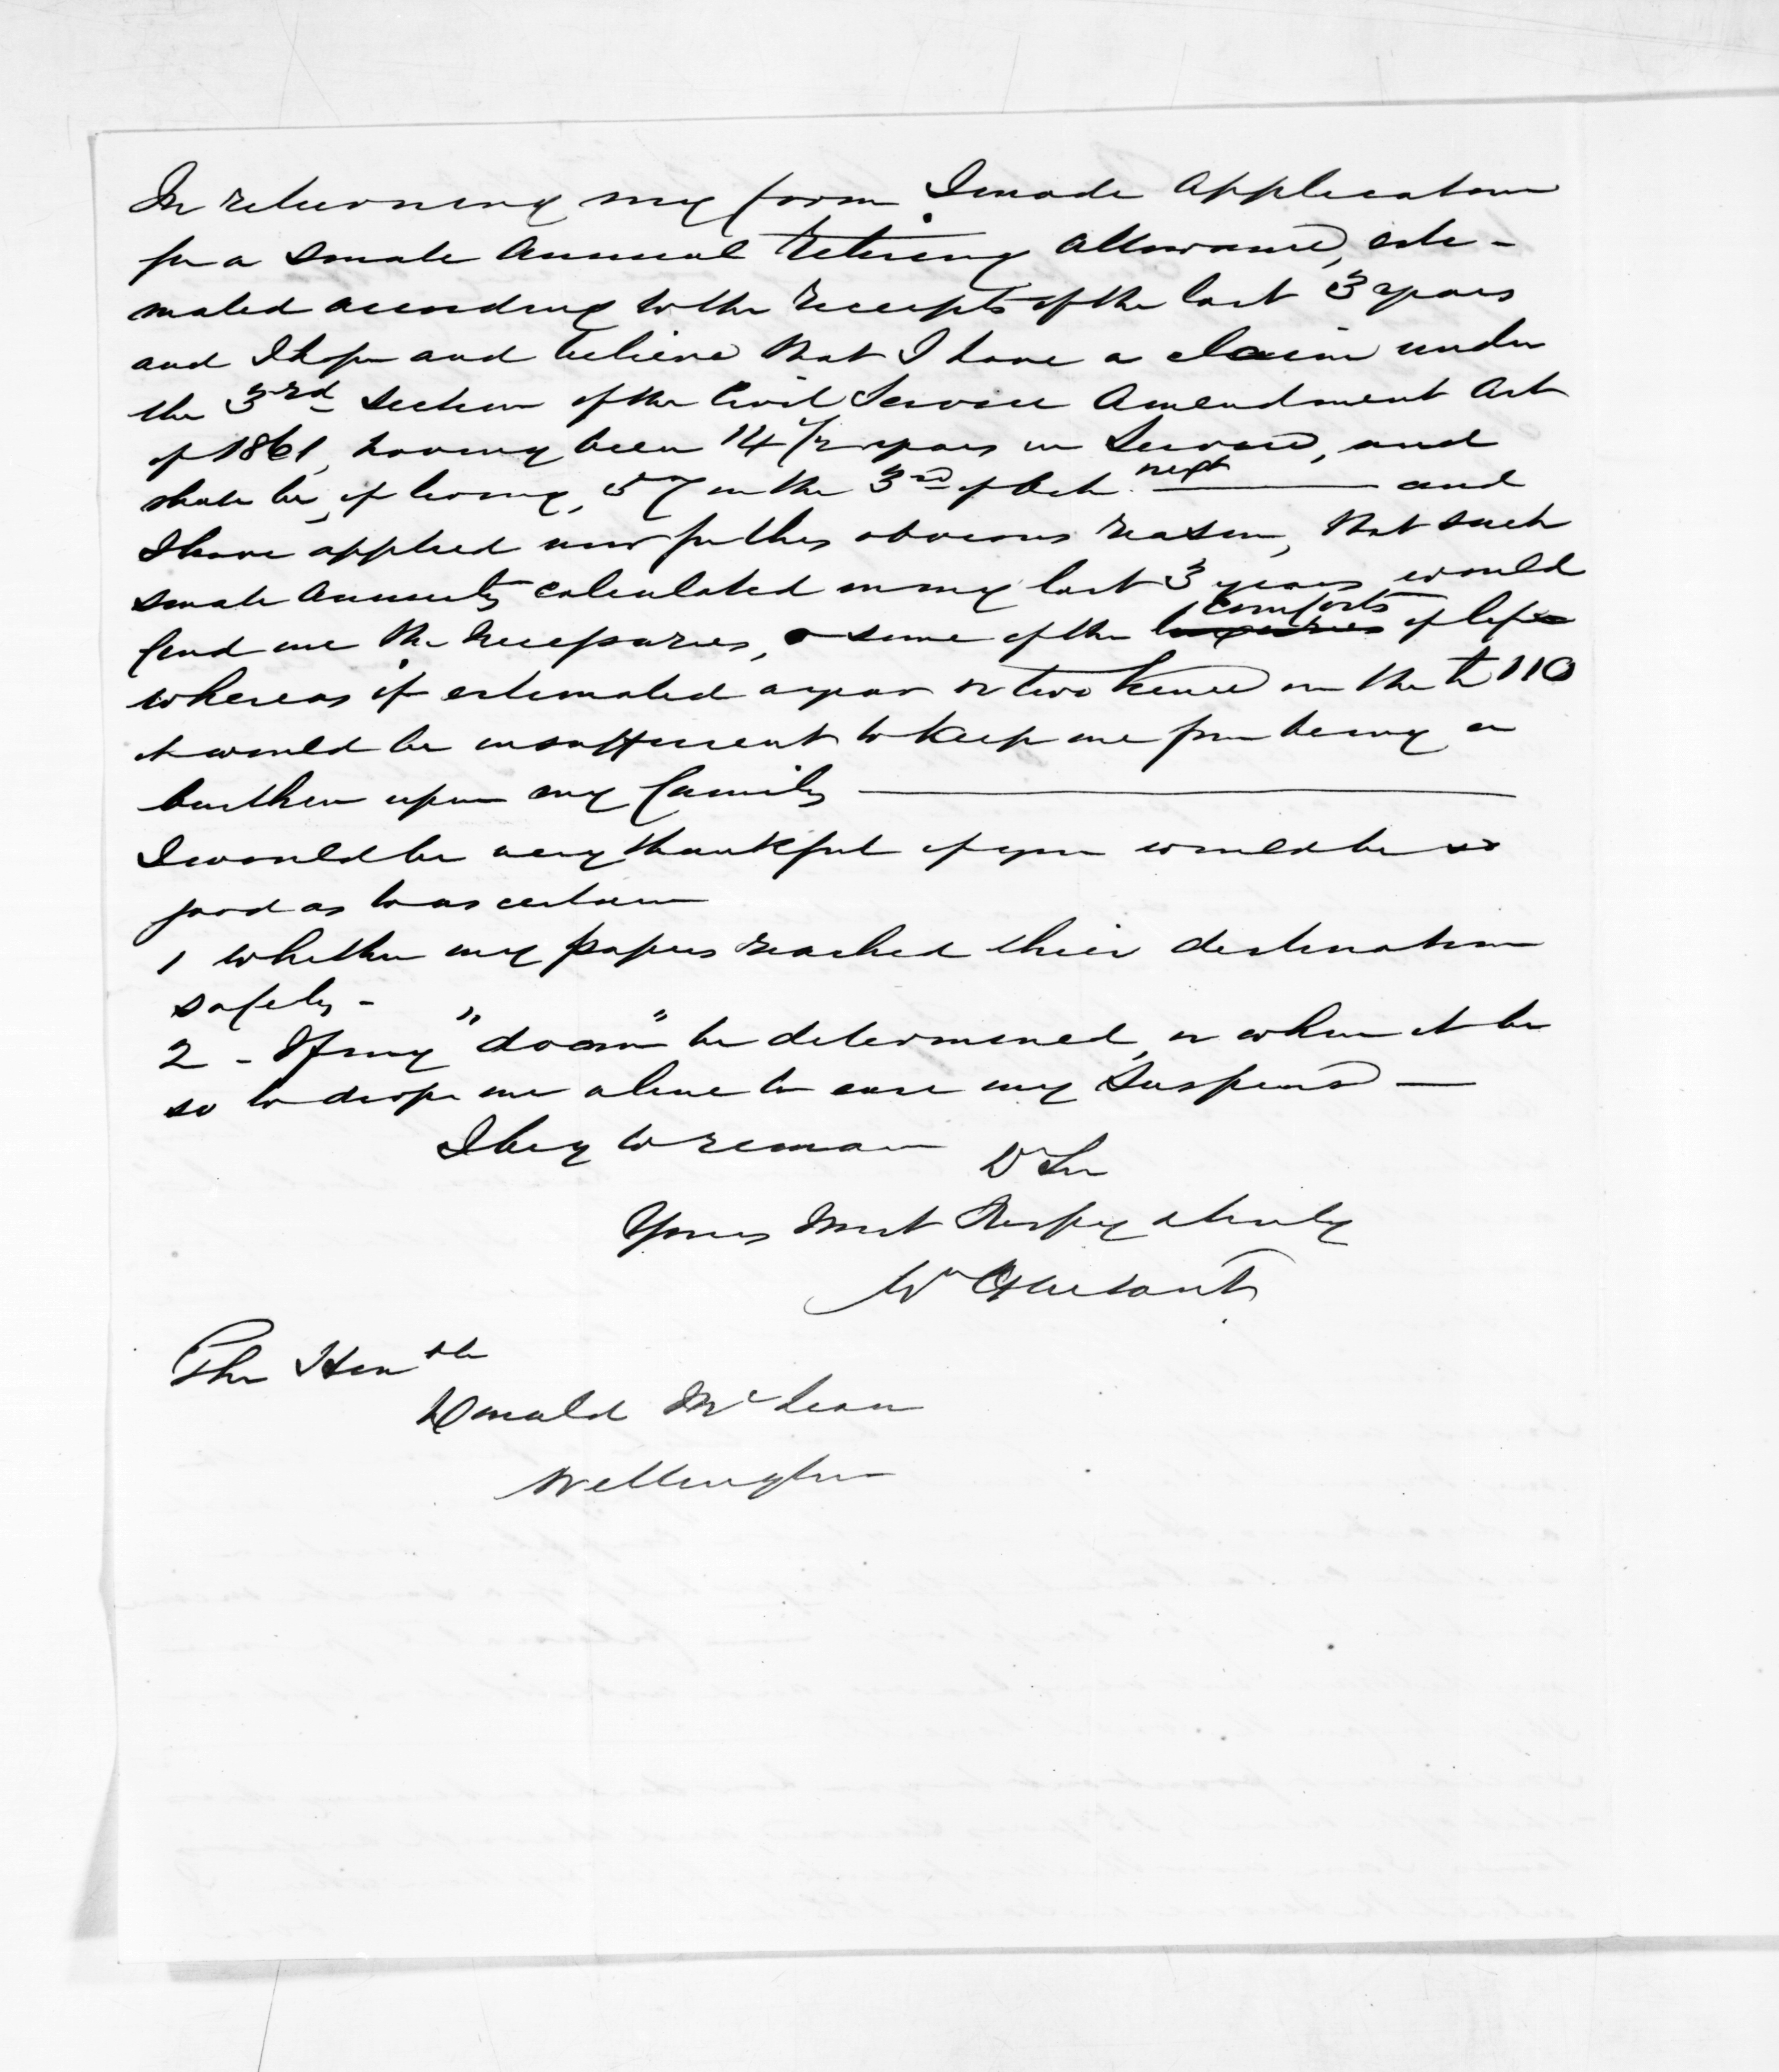 In returning my form I made application
for a small annual retiring allowance, esti-
mated according to the receipts of the last 3 years
and I hope and believe that I have a claim under
the 3rd section of the Civil Service Amendment Act
of 1861, having been 14 1/2 years in Service, and
shall be, if living, 57 on the 3rd of Oct. next and
I have applied now for this obvious reason, that such
small annuity calculated on my last 3 years would
find me the necessaries, or some of the luxuries comforts of life
whereas if estimated a year or two hence on the £110
it would be insufficient to keep me from being a
burthen upon my family
I would be very thankful if you would be so
good as to ascertain
1 whether my papers reached their destination
safely -
2 - If my "doom" be determined, or when it be
so to drop me a line to ease my suspense —
I beg to remain Dr Sir
Yours Most Respy & truly
Wm
The Honble
Donald McLean
Wellington